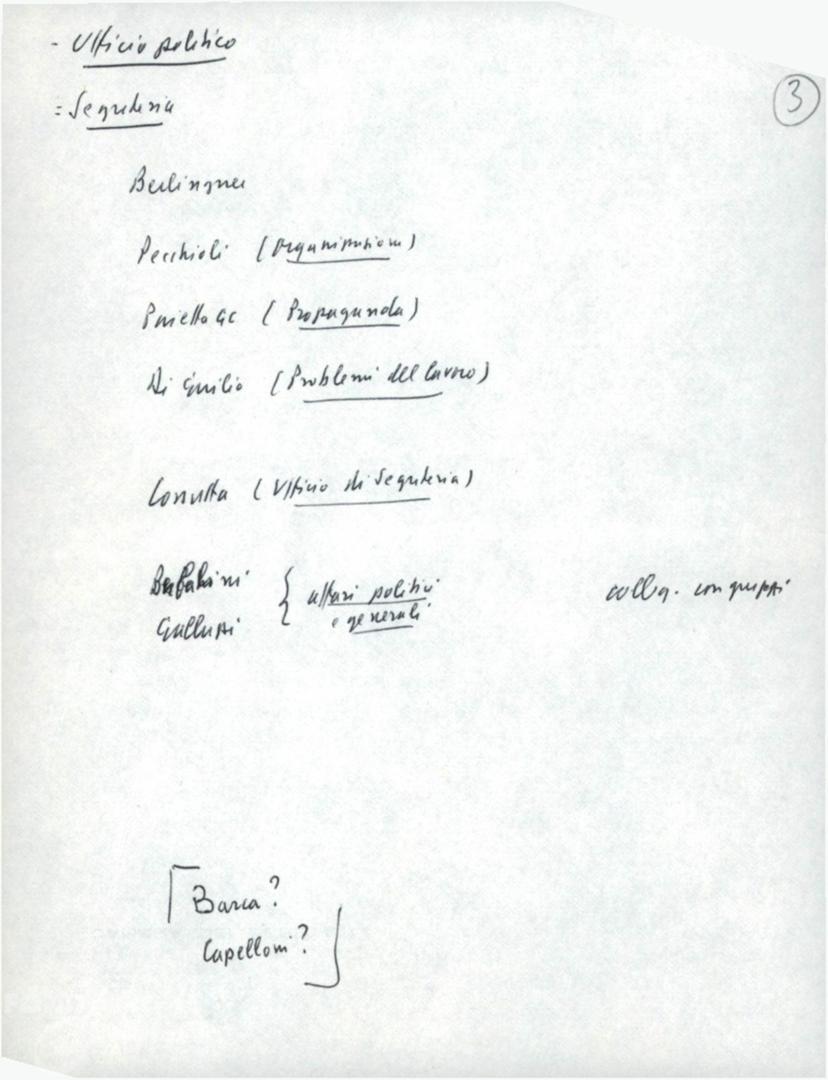 - Ufficio politico
3
= Segreteria
Berlinguer
Pecchioli (Organizzazione)
Pajetta GC (Propaganda)
Di Giulio (Problemi del lavoro)
Cossutta (Ufficio di Segreteria)
Bufalini { affari politici colleg. con gruppi
Galluzzi e generali
Barca?
Capelloni?